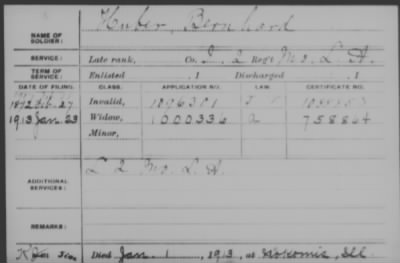 Huber, Bernhard
NAME OF
SOLDIER:
SERVICE: Late rank, Co. L. 2 Reg't Mo. L. A.
TERM OF
SERVICE: Enlisted , 1 Discharged , 1
DATE OF FILING. CLASS. APPLICATION NO. LAW. CERTIFICATE NO.
Feb. 27 Invalid, 1096301
1913 Jan. 23 Widow, 1000336 758864
Minor,
ADDITIONAL
SERVICES: L 2 Mo. L. A.
REMARKS:
Died Jan. 1, 1913, at Nokomis, Ill.